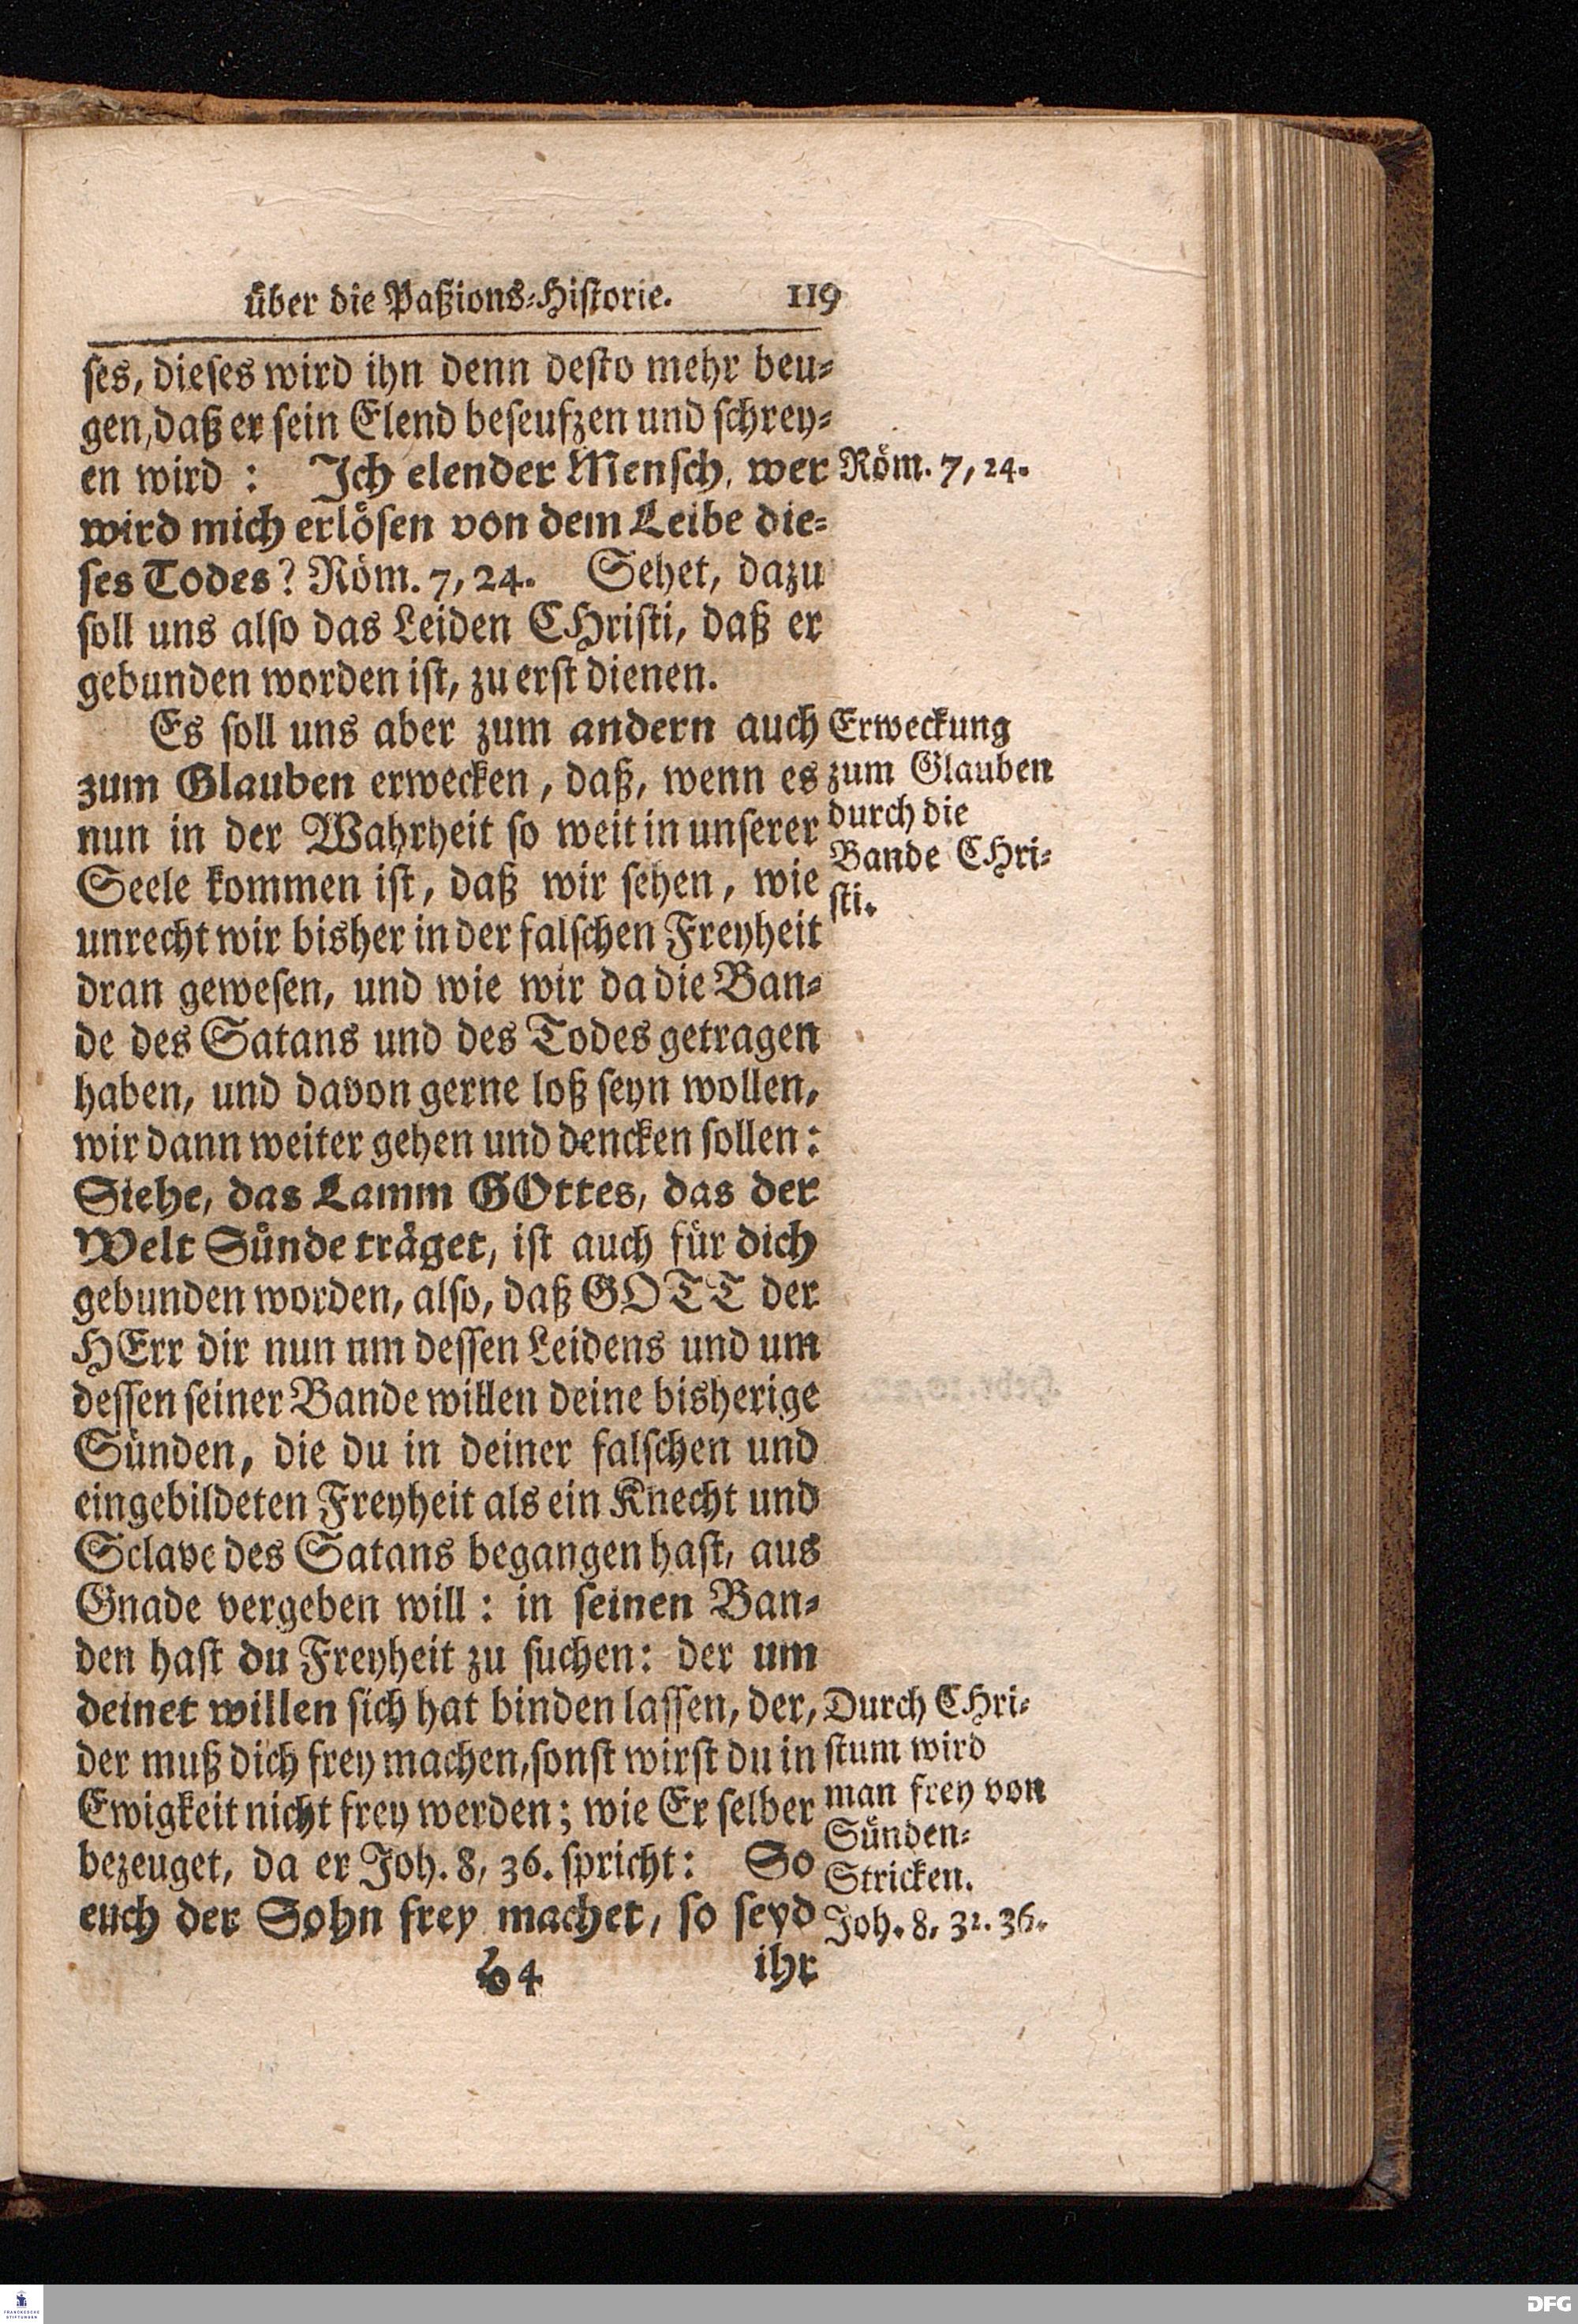 über die Paßions-Historie. 119
ses, dieses wird ihn denn desto mehr beu-
gen, daß er sein Elend beseufzen und schrey-
en wird : Ich elender Mensch, wer
Röm. 7, 24.
wird mich erlösen von dem Leibe die-
ses Todes? Röm. 7, 24. Sehet, dazu
soll uns also das Leiden CHristi, daß er
gebunden worden ist, zu erst dienen.
Es soll uns aber zum andern auch
zum Glauben erwecken, daß, wenn es
nun in der Wahrheit so weit in unserer
Seele kommen ist, daß wir sehen, wie
unrecht wir bisher in der falschen Freyheit
dran gewesen, und wie wir da die Ban-
de des Satans und des Todes getragen
haben, und davon gerne loß seyn wollen,
wir dann weiter gehen und dencken sollen:
Erweckung
zum Glauben
durch die
Bande CHri-
sti.
Siehe, das Lamm GOttes, das der
Welt Sünde träget, ist auch für dich
gebunden worden, also, daß GOTT der
HErr dir nun um dessen Leidens und um
dessen seiner Bande willen deine bisherige
Sünden, die du in deiner falschen und
eingebildeten Freyheit als ein Knecht und
Sclave des Satans begangen hast, aus
Gnade vergeben will : in seinen Ban-
den hast du Freyheit zu suchen: der um
deinet willen sich hat binden lassen, der,
der muß dich frey machen, sonst wirst du in
Ewigkeit nicht frey werden; wie Er selber
bezeuget, da er Joh. 8, 36. spricht: So
euch der Sohn frey machet, so seyd
Durch CHri-
stum wird
man frey von
Sünden-
Stricken.
Joh. 8, 32. 36.
4 ihr
FRANCKESCHE
STIFTUNGEN
DFG